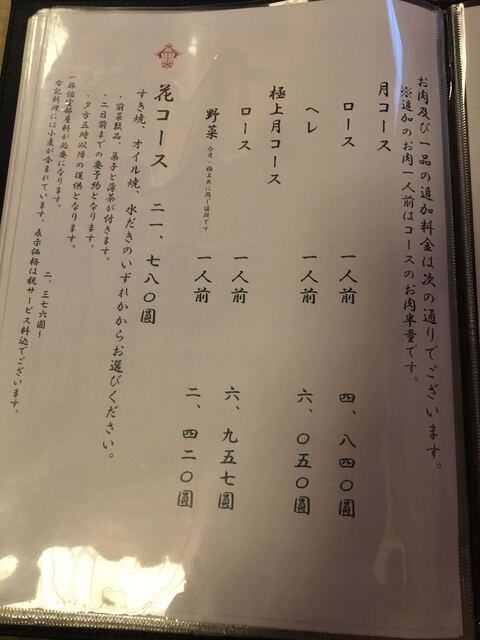 お肉及び一品の追加料金は次の通りでございます。
※追加のお肉一人前はコースのお肉半量です。
月コース
ロース 一人前 四、八四〇圓
ヘレ 一人前 六、〇五〇圓
極上月コース
ロース 一人前 六、九五七圓
野菜 ※月・極上共に同じ値段です 一人前 二、四二〇圓
花コース 二一、七八〇圓
すき焼、オイル焼、水だきのいずれかからお選びください。
・前菜製品、菓子と薄茶が付きます。
・二日前までの要予約となります。
・夕方五時以降の提供となります。
一部個室部屋料が必要になります。 二、三七六圓〜
各記料理には小麦が含まれています。表示価格は税サービス料込でございます。